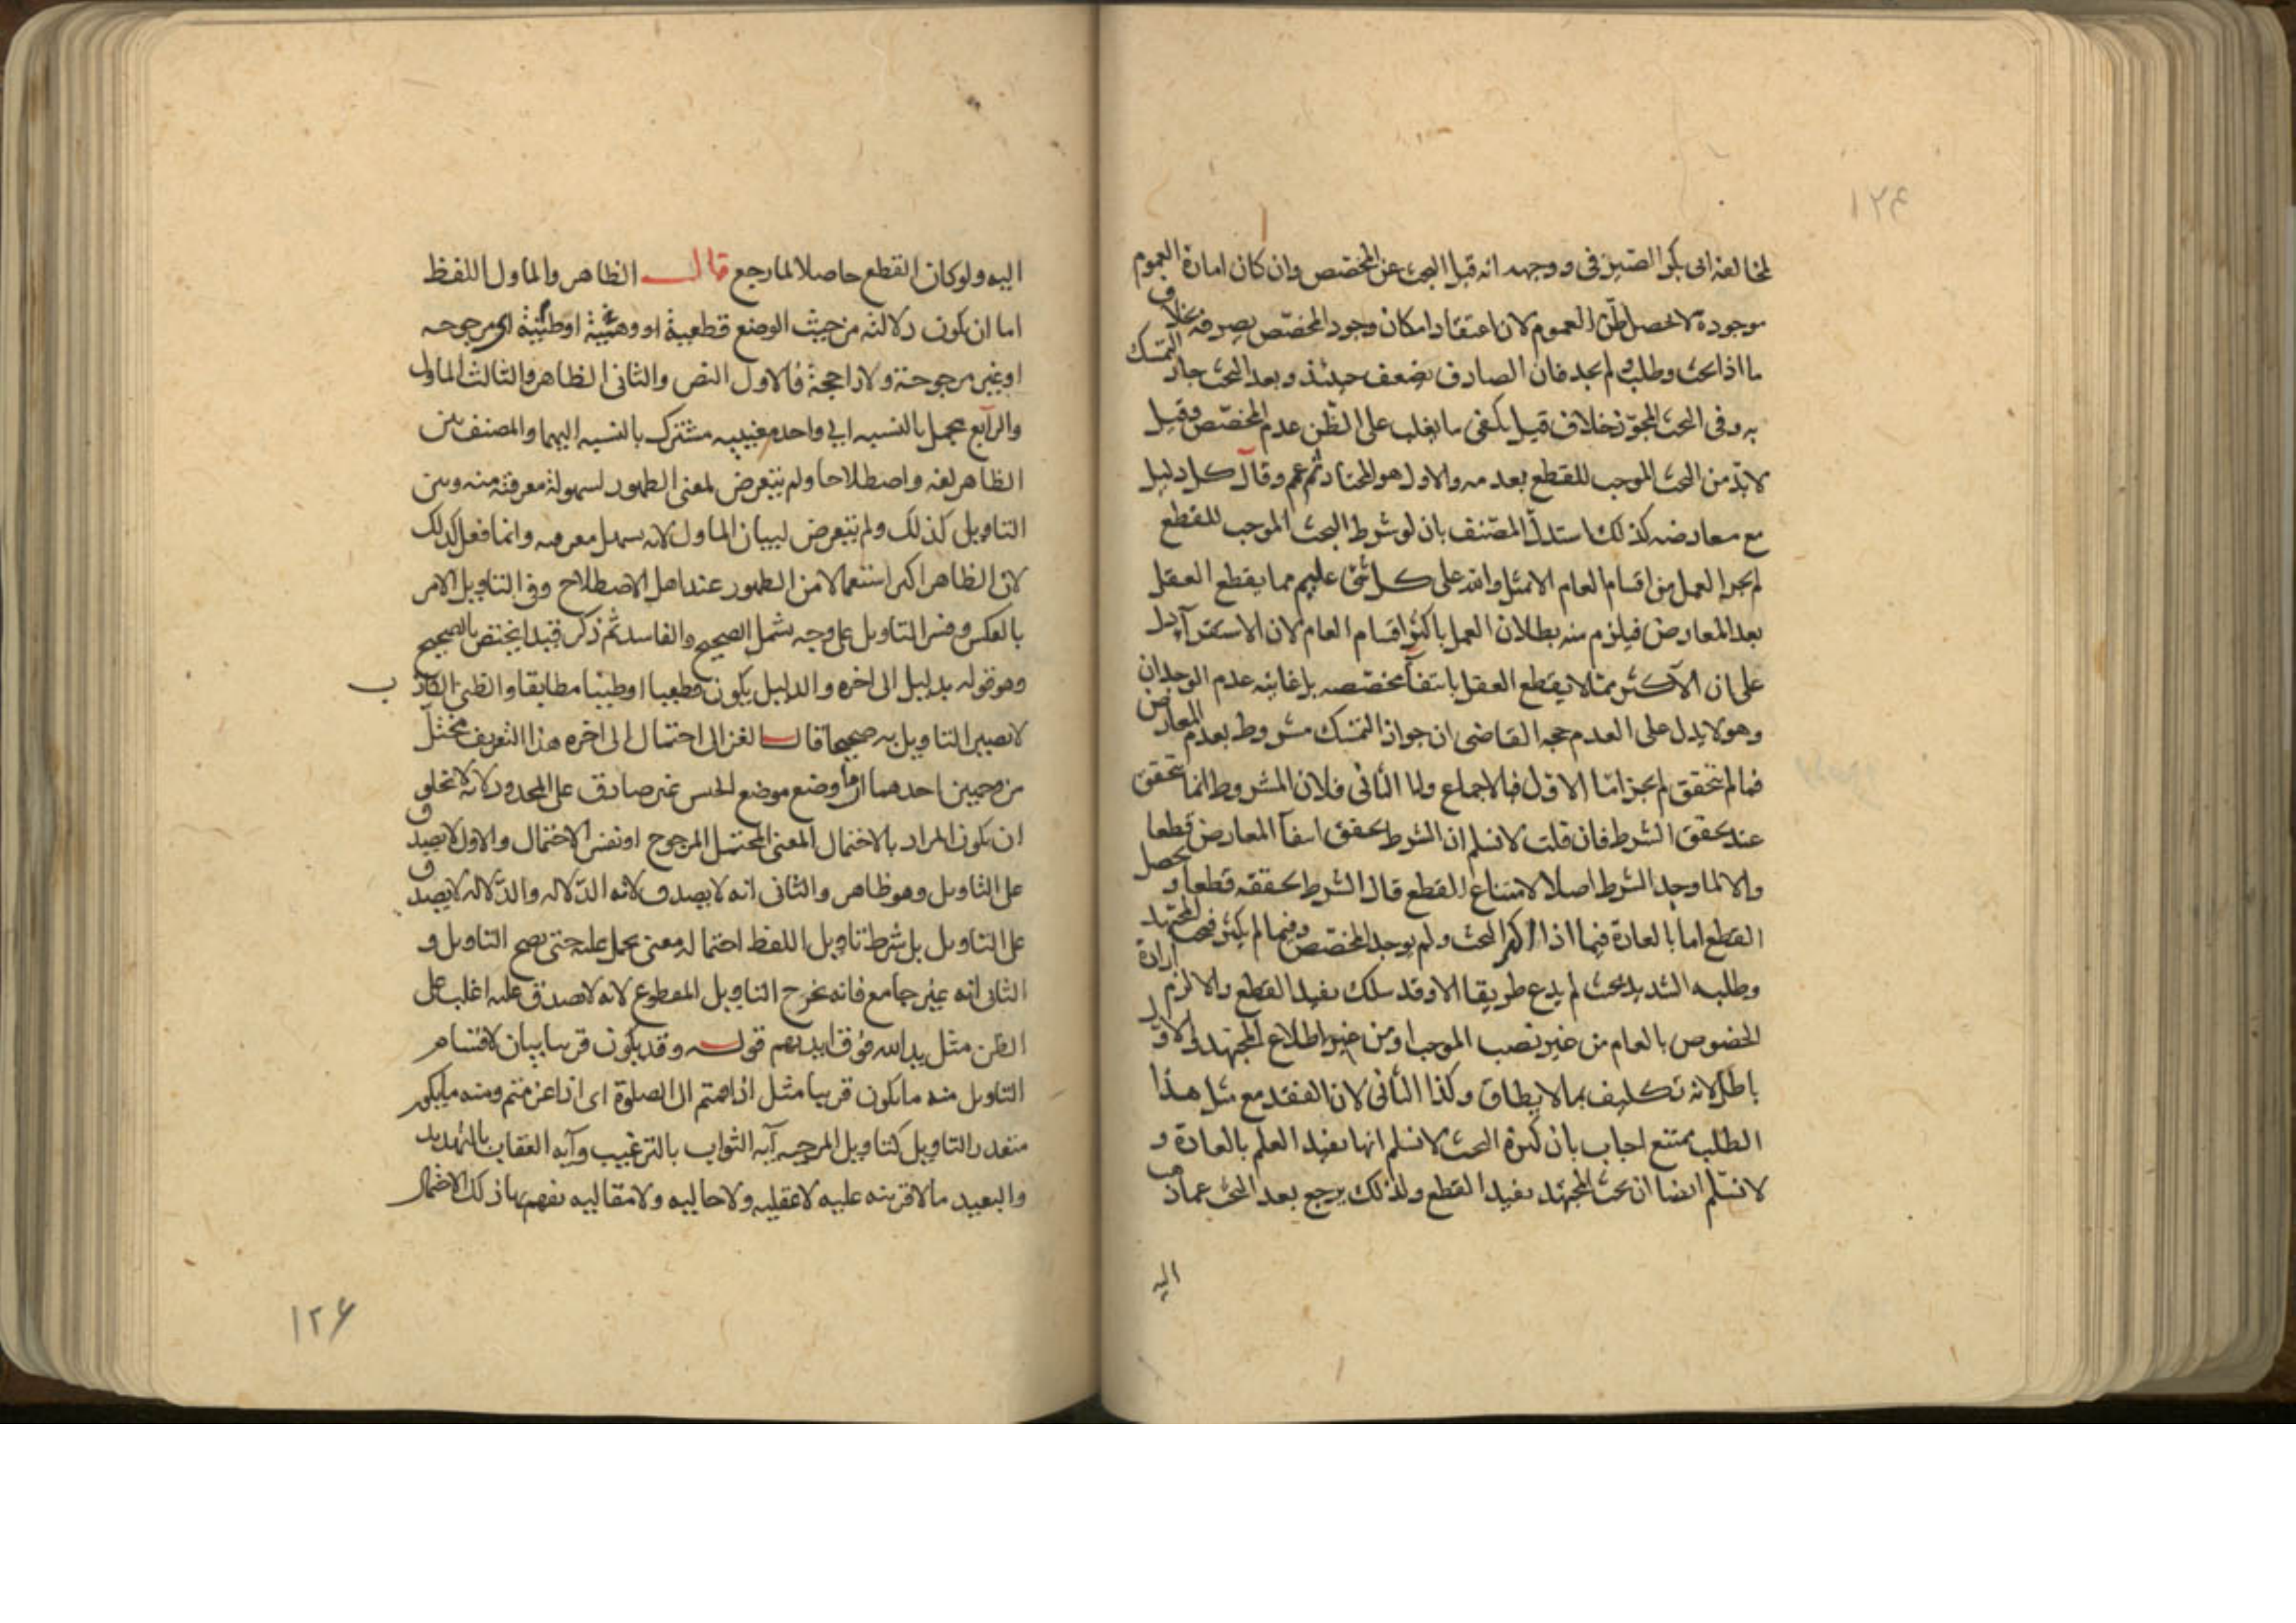 ١٢٤
لمخالفه ابى بكر الصيرفى ووجهه انه قبل البحث عن المخصّص وان كان امارة العموم
موجودة لا تحصل ظن العموم لان اعتقاد امكان وجود المخصّص يصرفه بخلاف
ما اذا بحث وطلب ولم يجد فان الصارف يضعف حينئذ وبعد البحث جاز التمسك
به وفى البحث المجوّز خلاف قيل يكفى ما يغلب على الظن عدم المخصّص وقيل
لا بدّ من البحث الموجب للقطع بعدمه والاول هو المختار ثم عمم وقال كل دليل
مع معارضه كذلك استدلّ المصنف بان لو شرط البحث الموجب للقطع
لم يجز العمل من اقسام العام الا مثل والله على كل شئ عليم مما يقطع العقل
بعد المعارض فيلزم منه بطلان العمل باكثر اقسام العام لان الاستقرآ يدل
على ان الآكثر مما لا يقطع العقل بانتفآ مخصّصه بل غايته عدم الوجدان
وهو لا يدل على العدم حجه القاضى ان جواز التمسك مشروط بعدم المعارض
فما لم تتحقق لم يجز امّا الاول فبالاجماع واما الثانى فلان المشروط انما تتحقق
عند تحقق الشرط فان قلت لا نسلم ان الشرط تحقق انتفآ المعارض قطعا
والا لما وجد الشرط اصلا لامتناع القطع قال الشرط تحققه قطعا و تحصل
القطع اما بالعادة فيما اذا اكثر البحث ولم يوجد المخصّص وفيما لم يكثر فبحث المجتهد
وطلبه الشديد بحث لم يدع طريقا الا وقد سلك يفيد القطع والا لزم ارادة
الخصوص بالعام من غير نصب الموجب او من غير اطلاع المجتهد والاول
باطل لانه تكليف بما لا يطاق وكذا الثانى لان الفقد مع مثل هذا
الطلب ممتنع اجاب بان كثرة البحث لا نسلم انها تفيد العلم بالعادة و
لا نسلم ايضا ان بحث المجتهد يفيد القطع ولذلك يرجع بعد البحث عما ذهب
اليه
اليه ولو كان القطع حاصلا لما رجع قال الظاهر والماول اللفظ
اما ان يكون دلالته من حيث الوضع قطعية او وهمية او ظنية اى مرجوحه
او غير مرجوحة ولا راجحة فالاول النص والثانى الظاهر والثالث الماول
والرآبع مجمل بالنسبه الى واحد معنييه مشترك بالنسبه اليهما والمصنف بين
الظاهر لغه واصطلاحا ولم يتعرض لمعنى الظهور لسهولة معرفته منه وبين
التاويل كذلك ولم يتعرض لبيان الماول لانه سهل معرفه وانما فعل كذلك
لان الظاهر اكثر استعمالا من الظهور عند اهل الاصطلاح وفى التاويل الامر
بالعكس وفسر التاويل على وجه يشمل الصحيح والفاسد ثم ذكر قيدا يختص بالصحيح
وهو قوله بدليل الى اخره والدليل يكون قطعيا او ظنيا مطابقا والظنى الكاذب
لا يصير التاويل به صحيحا قال الغزالى احتمال الى اخره هذا التعريف مختل
من وجهين احدهما ان ما وضع موضع الجنس غير صادق على المحدود لانه لا تخلو
ان يكون المراد بالاحتمال المعنى المحتمل المرجوح او نفس الاحتمال والاول لا يصدق
على التاويل وهو ظاهر والثانى انه لا يصدق لانه الدّلاله والدّلاله لا يصدق
على التاويل بل شرط تاويل اللفظ احتماله معنى يحمل عليه حتى يصح التاويل و
الثانى انه غير جامع فانه يخرج التاويل المقطوع لانه لا يصدق عليه اغلب على
الظن مثل يد الله فوق ايديهم قوله وقد يكون قريبا بيان لاقسام
التاويل منه ما يكون قريبا مثل اذا قمتم الى الصلوة اى اذا عزمتم ومنه ما يكون
متعذر التاويل كتاويل المرجيه آيه الثواب بالترغيب وآيه العقاب بالتهديد
والبعيد ما لا قرينه عليه لا عقليه ولا حاليه ولا مقاليه يفهم بها ذلك الاضمار
١٢۶